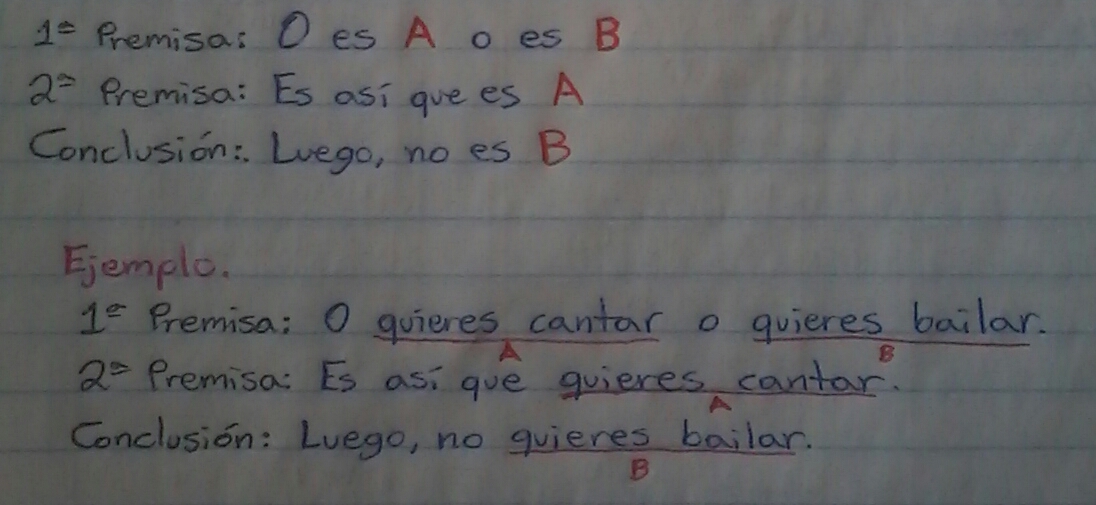 1ª Premisa: O es A o es B
2ª Premisa: Es así que es A
Conclusión:. Luego, no es B
Ejemplo.
1ª Premisa: O quieres cantar o quieres bailar.
A B
2ª Premisa: Es así que quieres cantar.
A
Conclusión: Luego, no quieres bailar.
B